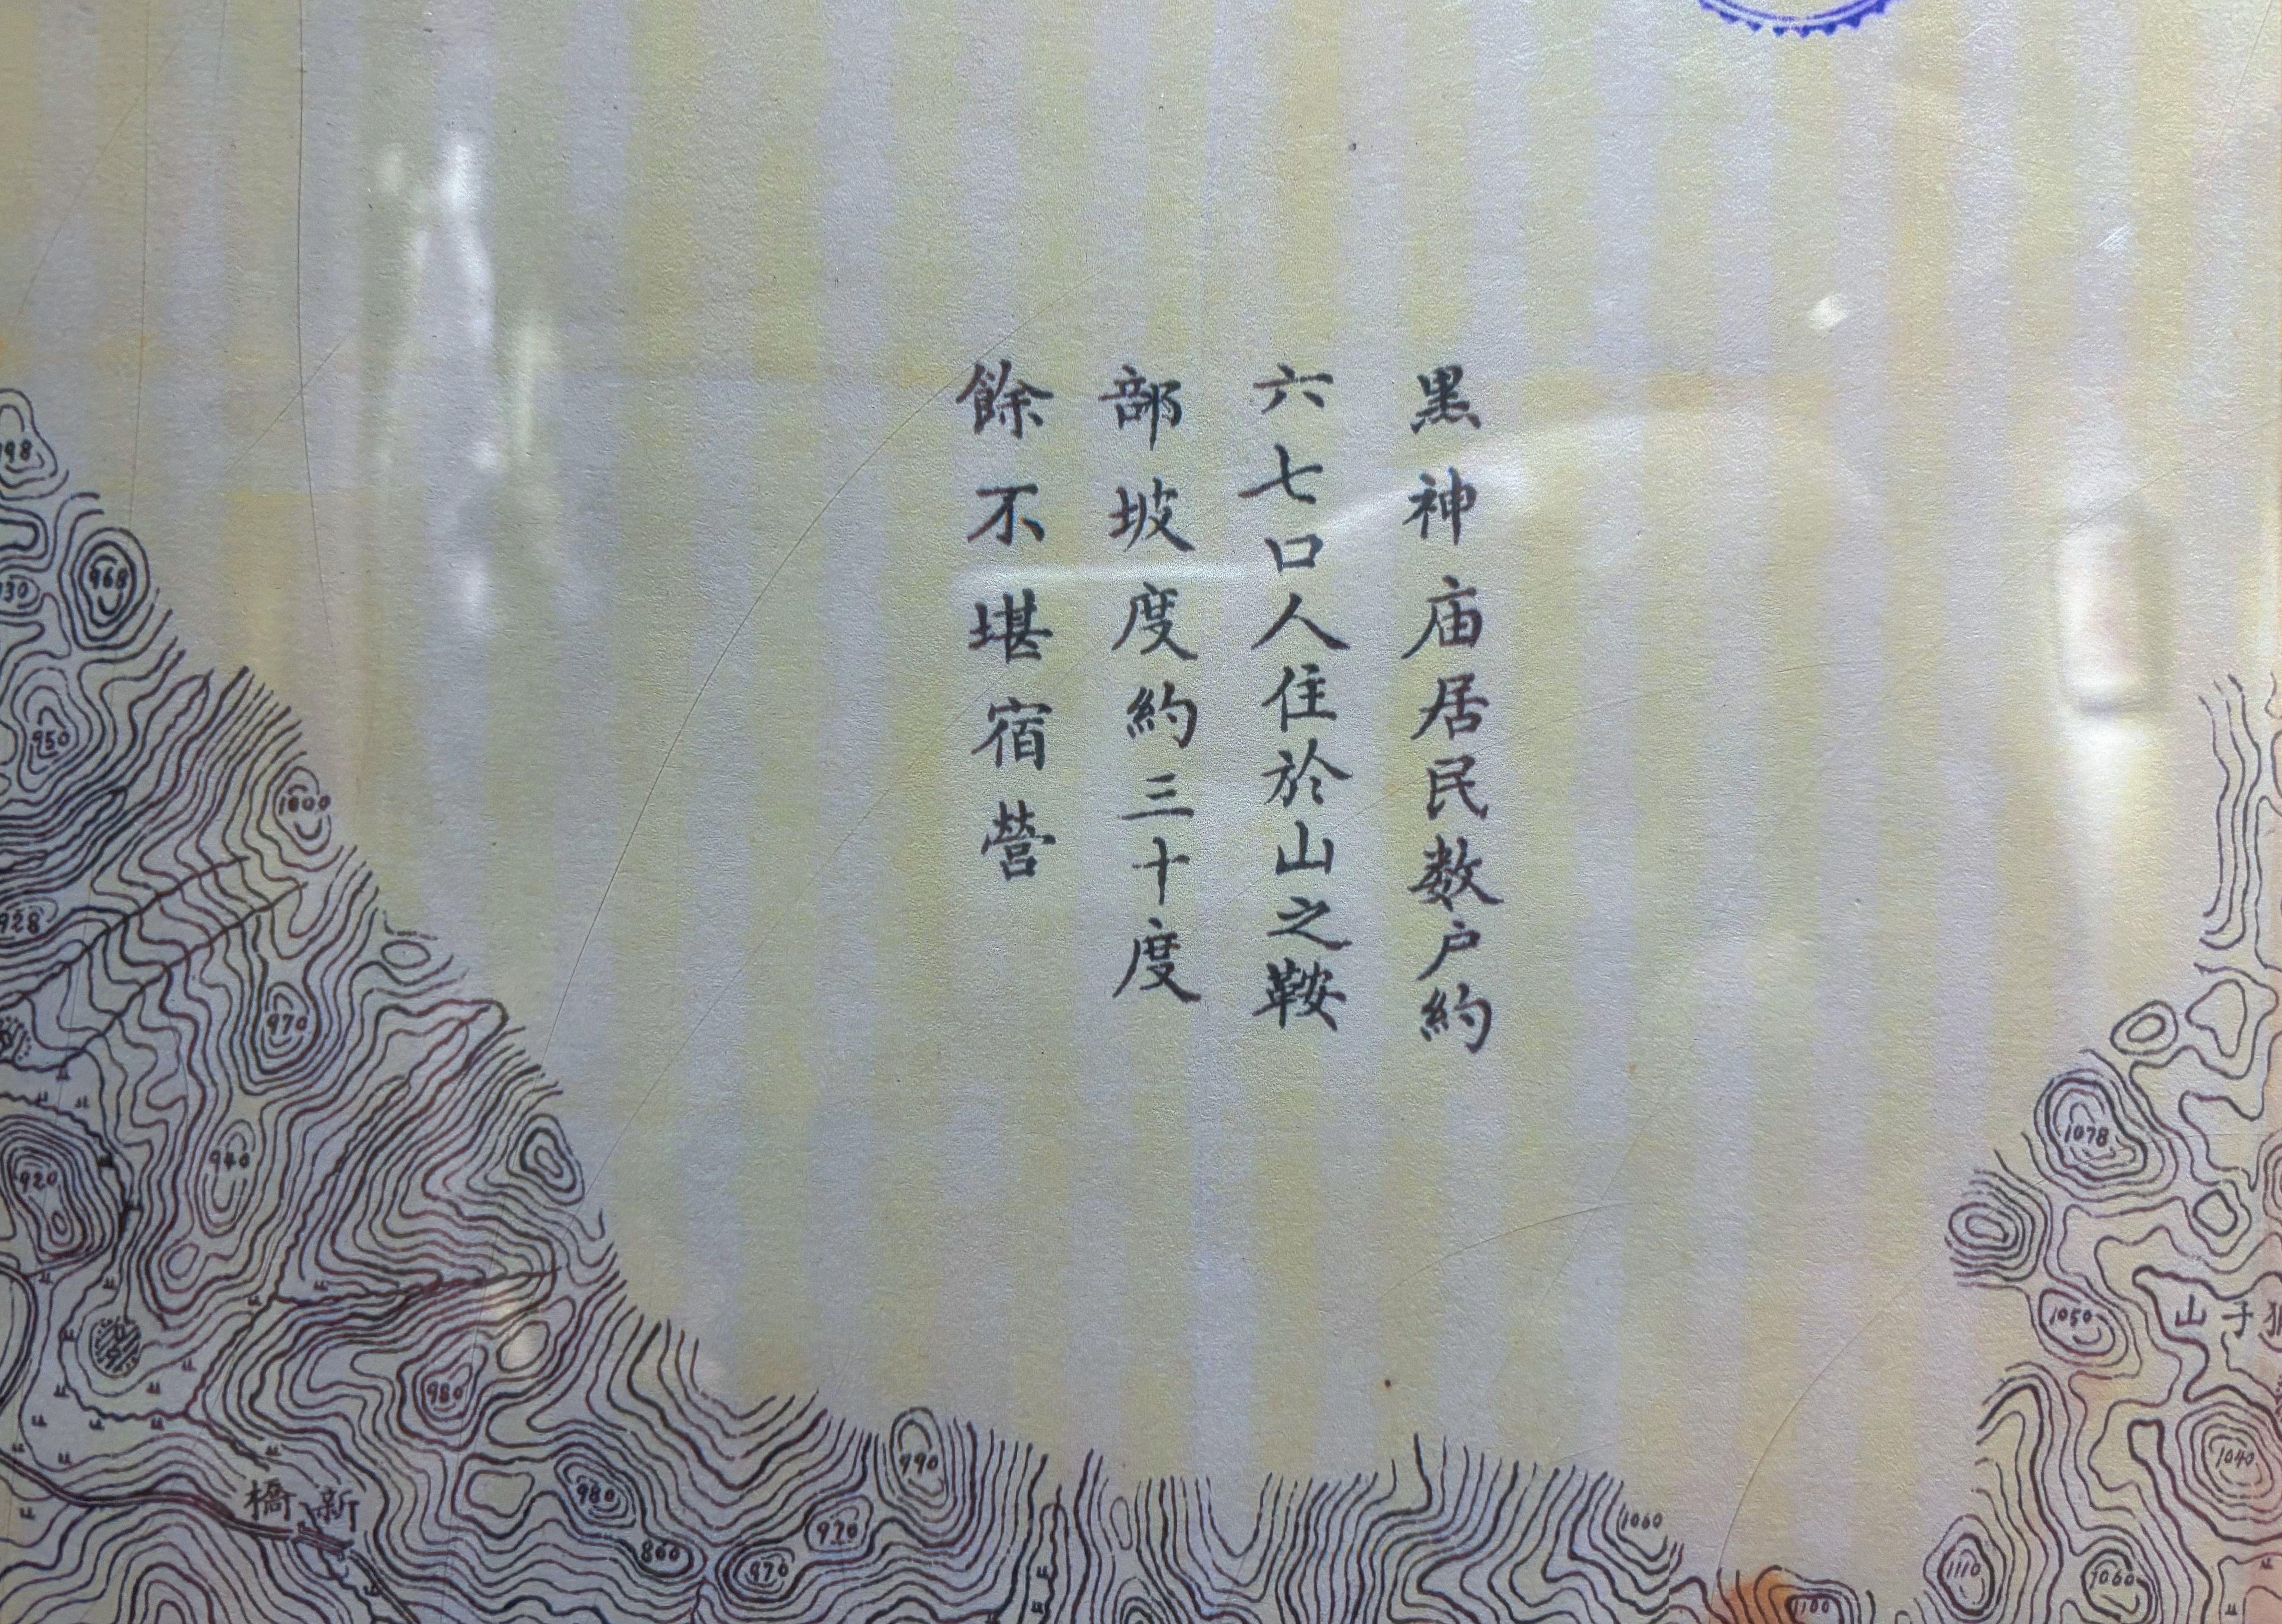 黑神庙居民数户約
六七口人住於山之鞍
部坡度約三十度
餘不堪宿營
968
950
1000
928
970
920
940
980
新橋
980
860
970
970
990
1060
1078
1050
子山
1040
1110
1060
1100